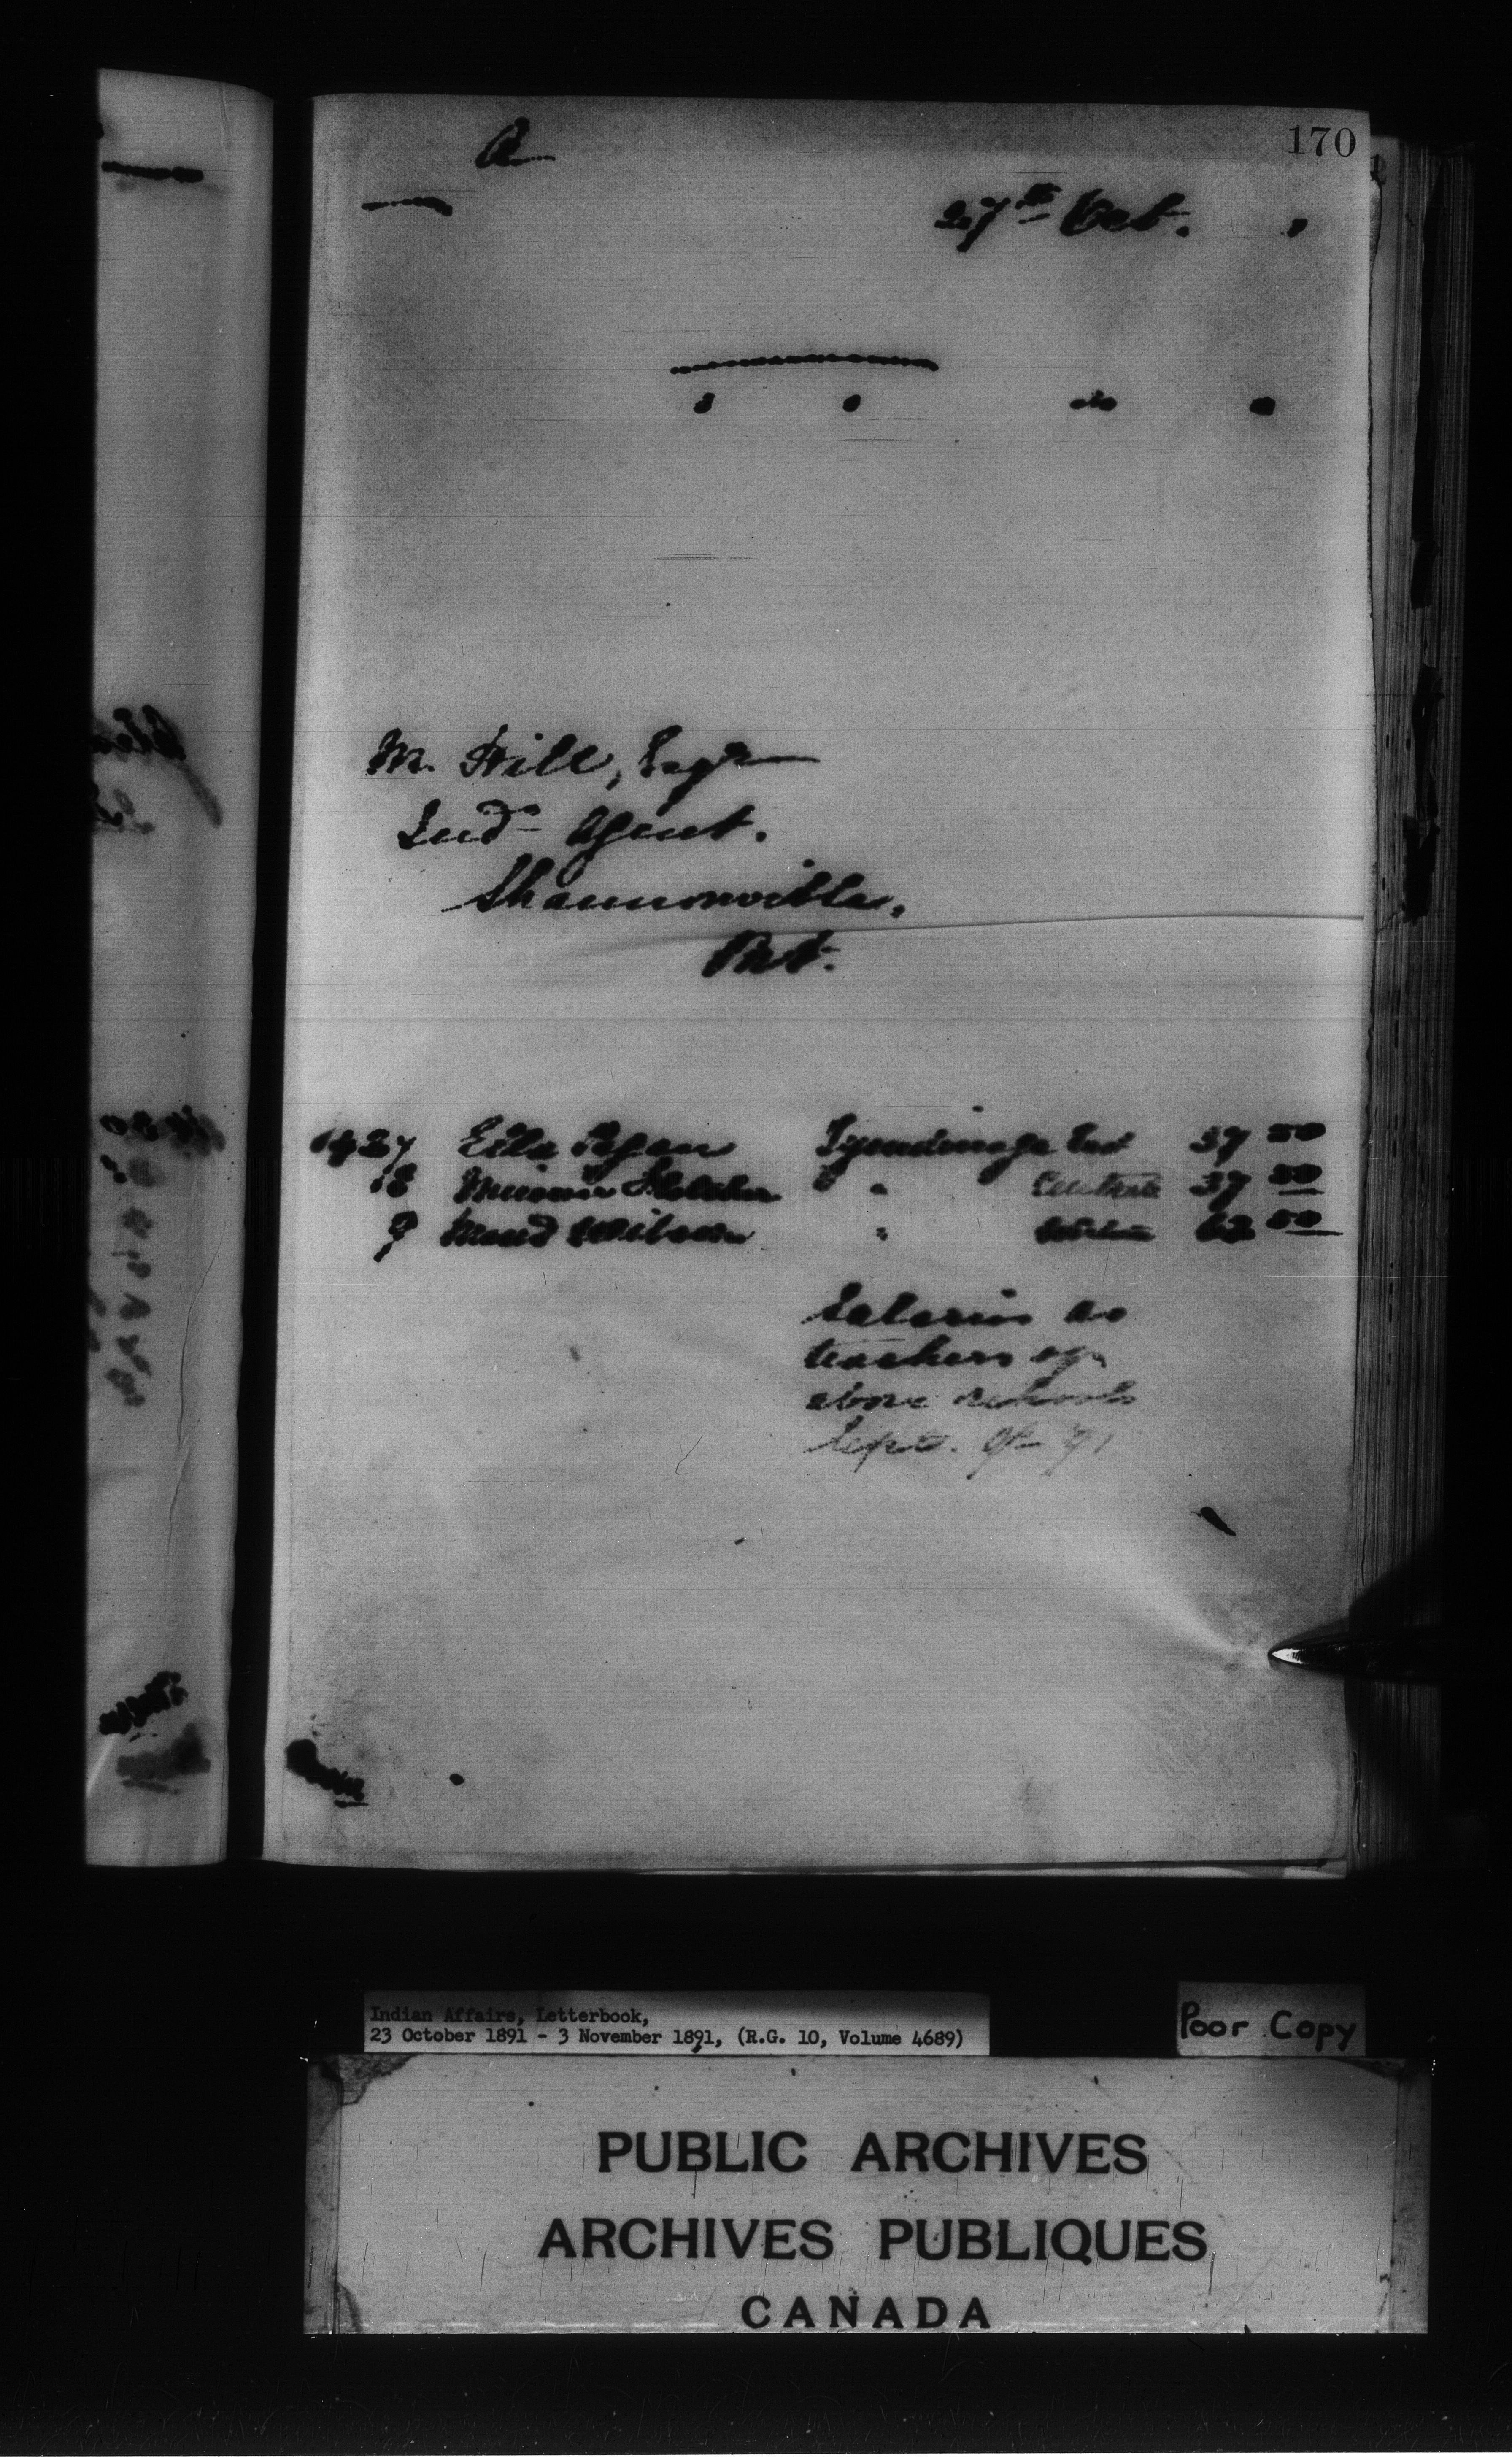 170
27th Oct.
M. Hill, Esqr
Ind. Agent.
Shannonville,
Ont.
27 Ella Tyendinaga 37 50
8 Fletcher " 37 50
9 Maud Wilson " 62 50
Salaries as
teachers of
above schools
Sept. Qr 91
Indian Affairs, Letterbook,
23 October 1891 - 3 November 1891, (R.G. 10, Volume 4689)
Poor Copy
PUBLIC ARCHIVES
ARCHIVES PUBLIQUES
CANADA